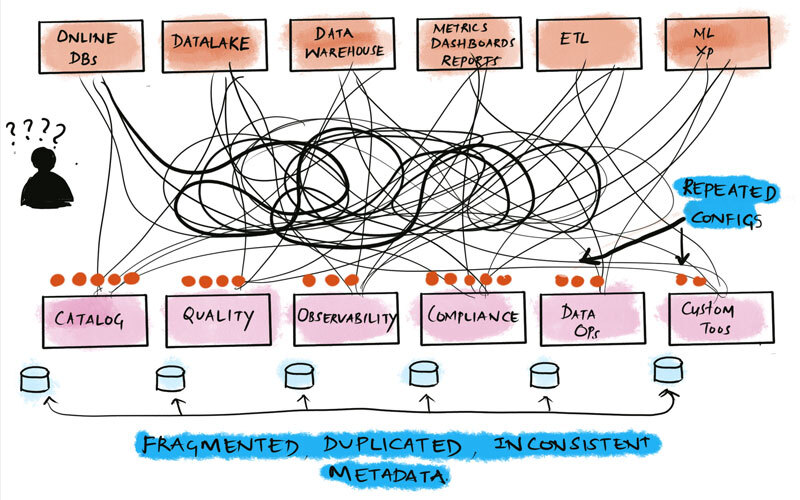 ONLINE
DBs
DATALAKE
DATA
WAREHOUSE
METRICS
DASHBOARDS
REPORTS
ETL
ML
XP
????
REPEATED
CONFIGS
CATALOG
QUALITY
OBSERVABILITY
COMPLIANCE
DATA
OPs
CUSTOM
TOOS
FRAGMENTED, DUPLICATED, INCONSISTENT
METADATA